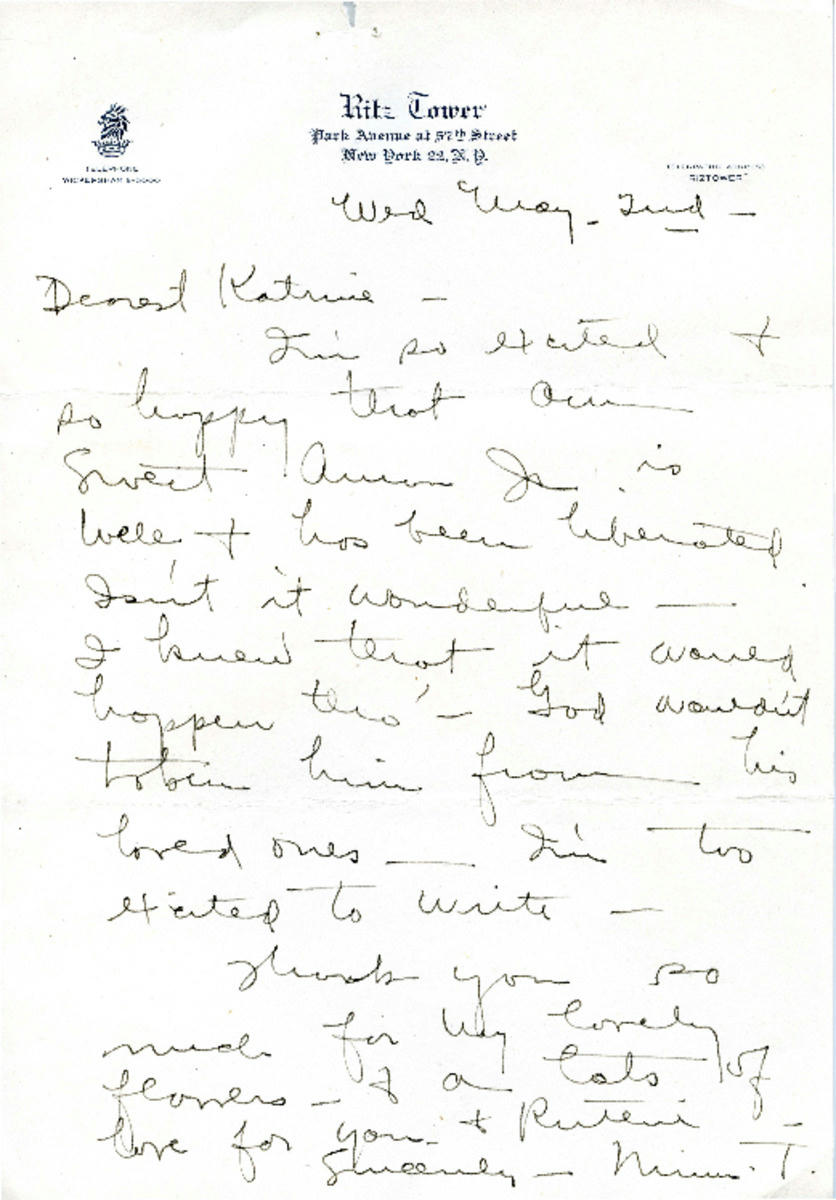 Ritz Tower
Park Avenue at 57th Street
New York 22, N.Y.
TELEPHONE
WICKERSHAM 2-5000
RIZTOWER
Wed May - 2nd -
Dearest Katrine -
I'm so excited +
so happy that our
Sweet Amon Jr is
well + has been liberated
Isn't it wonderful —
I knew that it would
happen tho' - God wouldn't
him from his
loved ones — I'm too
excited to write -
Thank you so
much for my lovely
flowers - + a lots of
love for you - + Ruteni -
Sincerely - T.